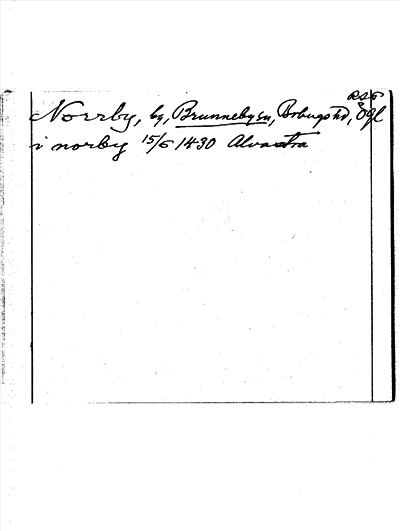 RSÖ
Norrby, by, Brunneby sn, Bobergs hd, Ögl
i norby 15/6 1430 Alvastra